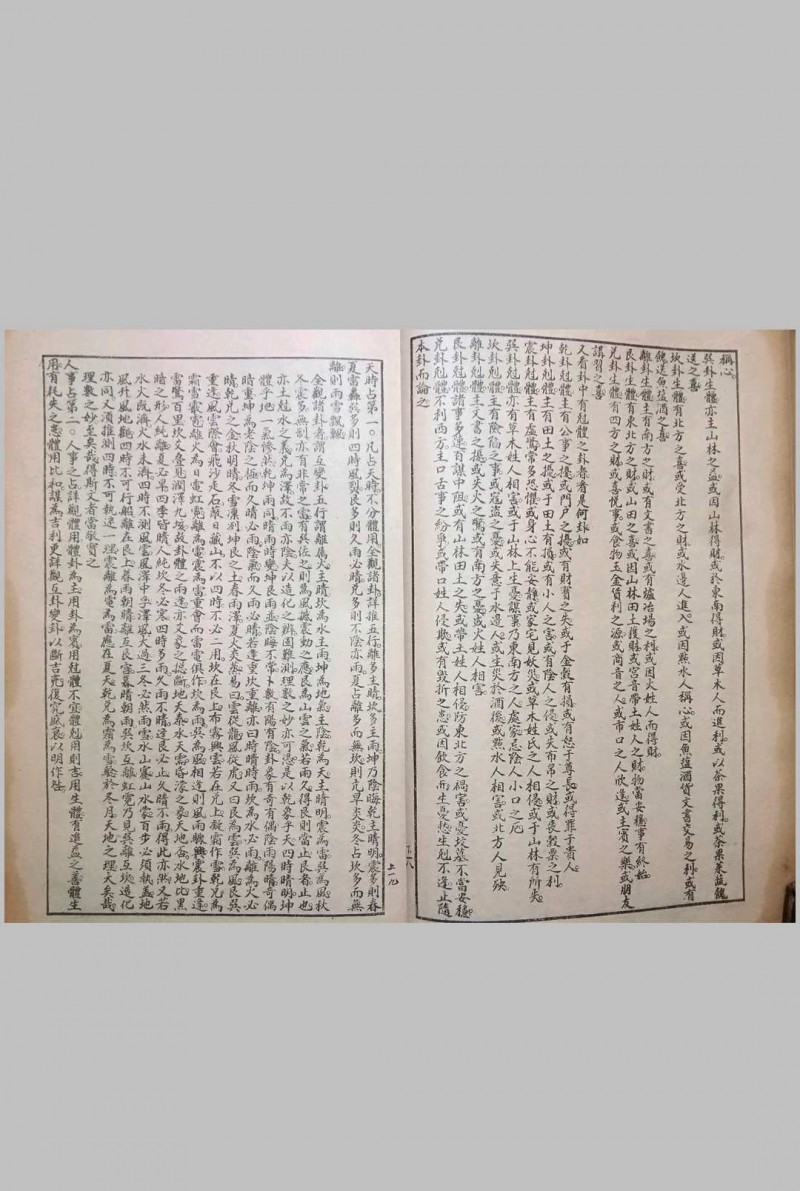 稱心
巽卦生體亦主山林之益或因山林得財或於東南得財或因草木人而進利或以茶果得利或茶果菜蔬餽
送之喜
坎卦生體有北方之喜或受北方之財或水邊人進入或因點水人稱心或因魚鹽酒貨文書交易之利或有
餽送魚鹽酒之喜
離卦生體主有南方之財或有文書之喜或有爐冶場之利或因火姓人而得財
艮卦生體有東北方之財或山田之喜或因山林田土獲財或宮音帶土姓人之財物當安穩事有終始
兌卦生體有西方之財或喜悅事或食物玉金貨利之源或商音之人或市口之人欣逢或主賓之樂或朋友
講習之喜
又看卦中有尅體之卦者看是何卦如
乾卦尅體主有公事之擾或門戶之擾或有財寶之失或于金穀有損或有怒于尊長或得罪于貴人
坤卦尅體主有田土之擾或于田土有損或有小人之害或有陰人之侵或失布帛之財或喪穀粟之利
震卦尅體主有虛驚常多恐懼或身心不能安靜或家宅見妖災或草木姓氏之人相侵或于山林有所失
巽卦尅體亦有草木姓人相害或于山林上生憂謀事乃東南方之人處家忌陰人小口之厄
坎卦尅體主有險陷之事或寇盜之憂或失意于水邊人或生災於酒後或點水人相害或北方人見殃
離卦尅體主文書之擾或失火之驚或有南方之憂或火姓人相害
艮卦尅體諸事多違百謀中阻或有山林田土之失或帶土姓人相侵防東北方之禍害或憂坟墓不當安穩
兌卦尅體不利西方主口舌事之紛爭或帶口姓人侵欺或有毀折之患或因飲食而生憂愁生尅不逢止隨
本卦而論之
天時占第一○凡占天時不分體用全觀諸卦詳推五行離多主晴坎多主雨坤乃陰晦乾主晴明震多則春
夏雷轟巽多則四時風烈艮多則久雨必晴兌多則不陰亦雨夏占離多而無坎則亢旱炎炎冬占坎多而無
離則雨雪飄飄
全觀諸卦者謂互變卦五行謂離屬火主晴坎為水主雨坤為地氣主陰乾為天主晴明震為雷巽為風秋
冬震多無制亦有非常之雷有巽佐之則為風撼震動之應艮為山雲之氣若雨久得艮則當止艮者止也
亦土尅水之義兌為澤故不雨亦陰夫以造化之辨固難測理數之妙亦可憑是以乾象乎天四時晴明坤
體乎地一氣慘然乾坤兩同晴雨時變坤艮兩並陰晦不常卜數有陽有陰卦象有奇有偶陰雨陽晴奇偶
暗重坤為老陰之極而久晴必雨陰氣而久雨必晴若逢重坎重離亦曰時晴時雨坎為水必雨離為火必
晴乾兌之金秋明晴冬雪凜冽坤艮之土春雨澤夏火炎蒸易曰雲從龍風從虎又曰艮為雲巽為風艮巽
重逢風雲際會飛沙走石蔽日藏山不以四時不必二用坎在艮上布霧興雲若在兌上凝霜作雪乾兌為
霜雪霰雹離火為日電虹霓離為電震為雷重會而雷電俱作坎為雨巽為風相逢則風雨驟興震卦重逢
雷驚百里坎爻疊見潤澤九垓故卦體之兩逢亦爻象之總斷地天泰水天需昏濛之象天地否水地比黑
暗之形八純離夏必旱四季皆晴八純坎冬必寒四時多雨久雨不晴逢艮必止久晴不雨得此亦然又若
水火既濟火水未濟四時不測風雲風澤中孚澤風大過三冬必然雨雪水山蹇山水蒙百步必須執蓋地
風升風地觀四時不可行船離在艮上暮雨朝晴離互艮宮暮晴朝雨巽坎互離虹霓乃見巽離互坎造化
亦同又須推測四時不可執迷一理震離為電為雷應在夏天乾兌為霜為雪驗於冬月天地之理大矣哉
理數之妙至矣哉得斯文者當敬寶之
人事占第二○人事之占詳觀體用體卦為主用卦為賓用尅體不宜體尅用則吉用生體有進益之喜體生
用有耗失之患體用比和謀為吉利更詳觀互卦變卦以斷吉凶復究盛衰以明休咎